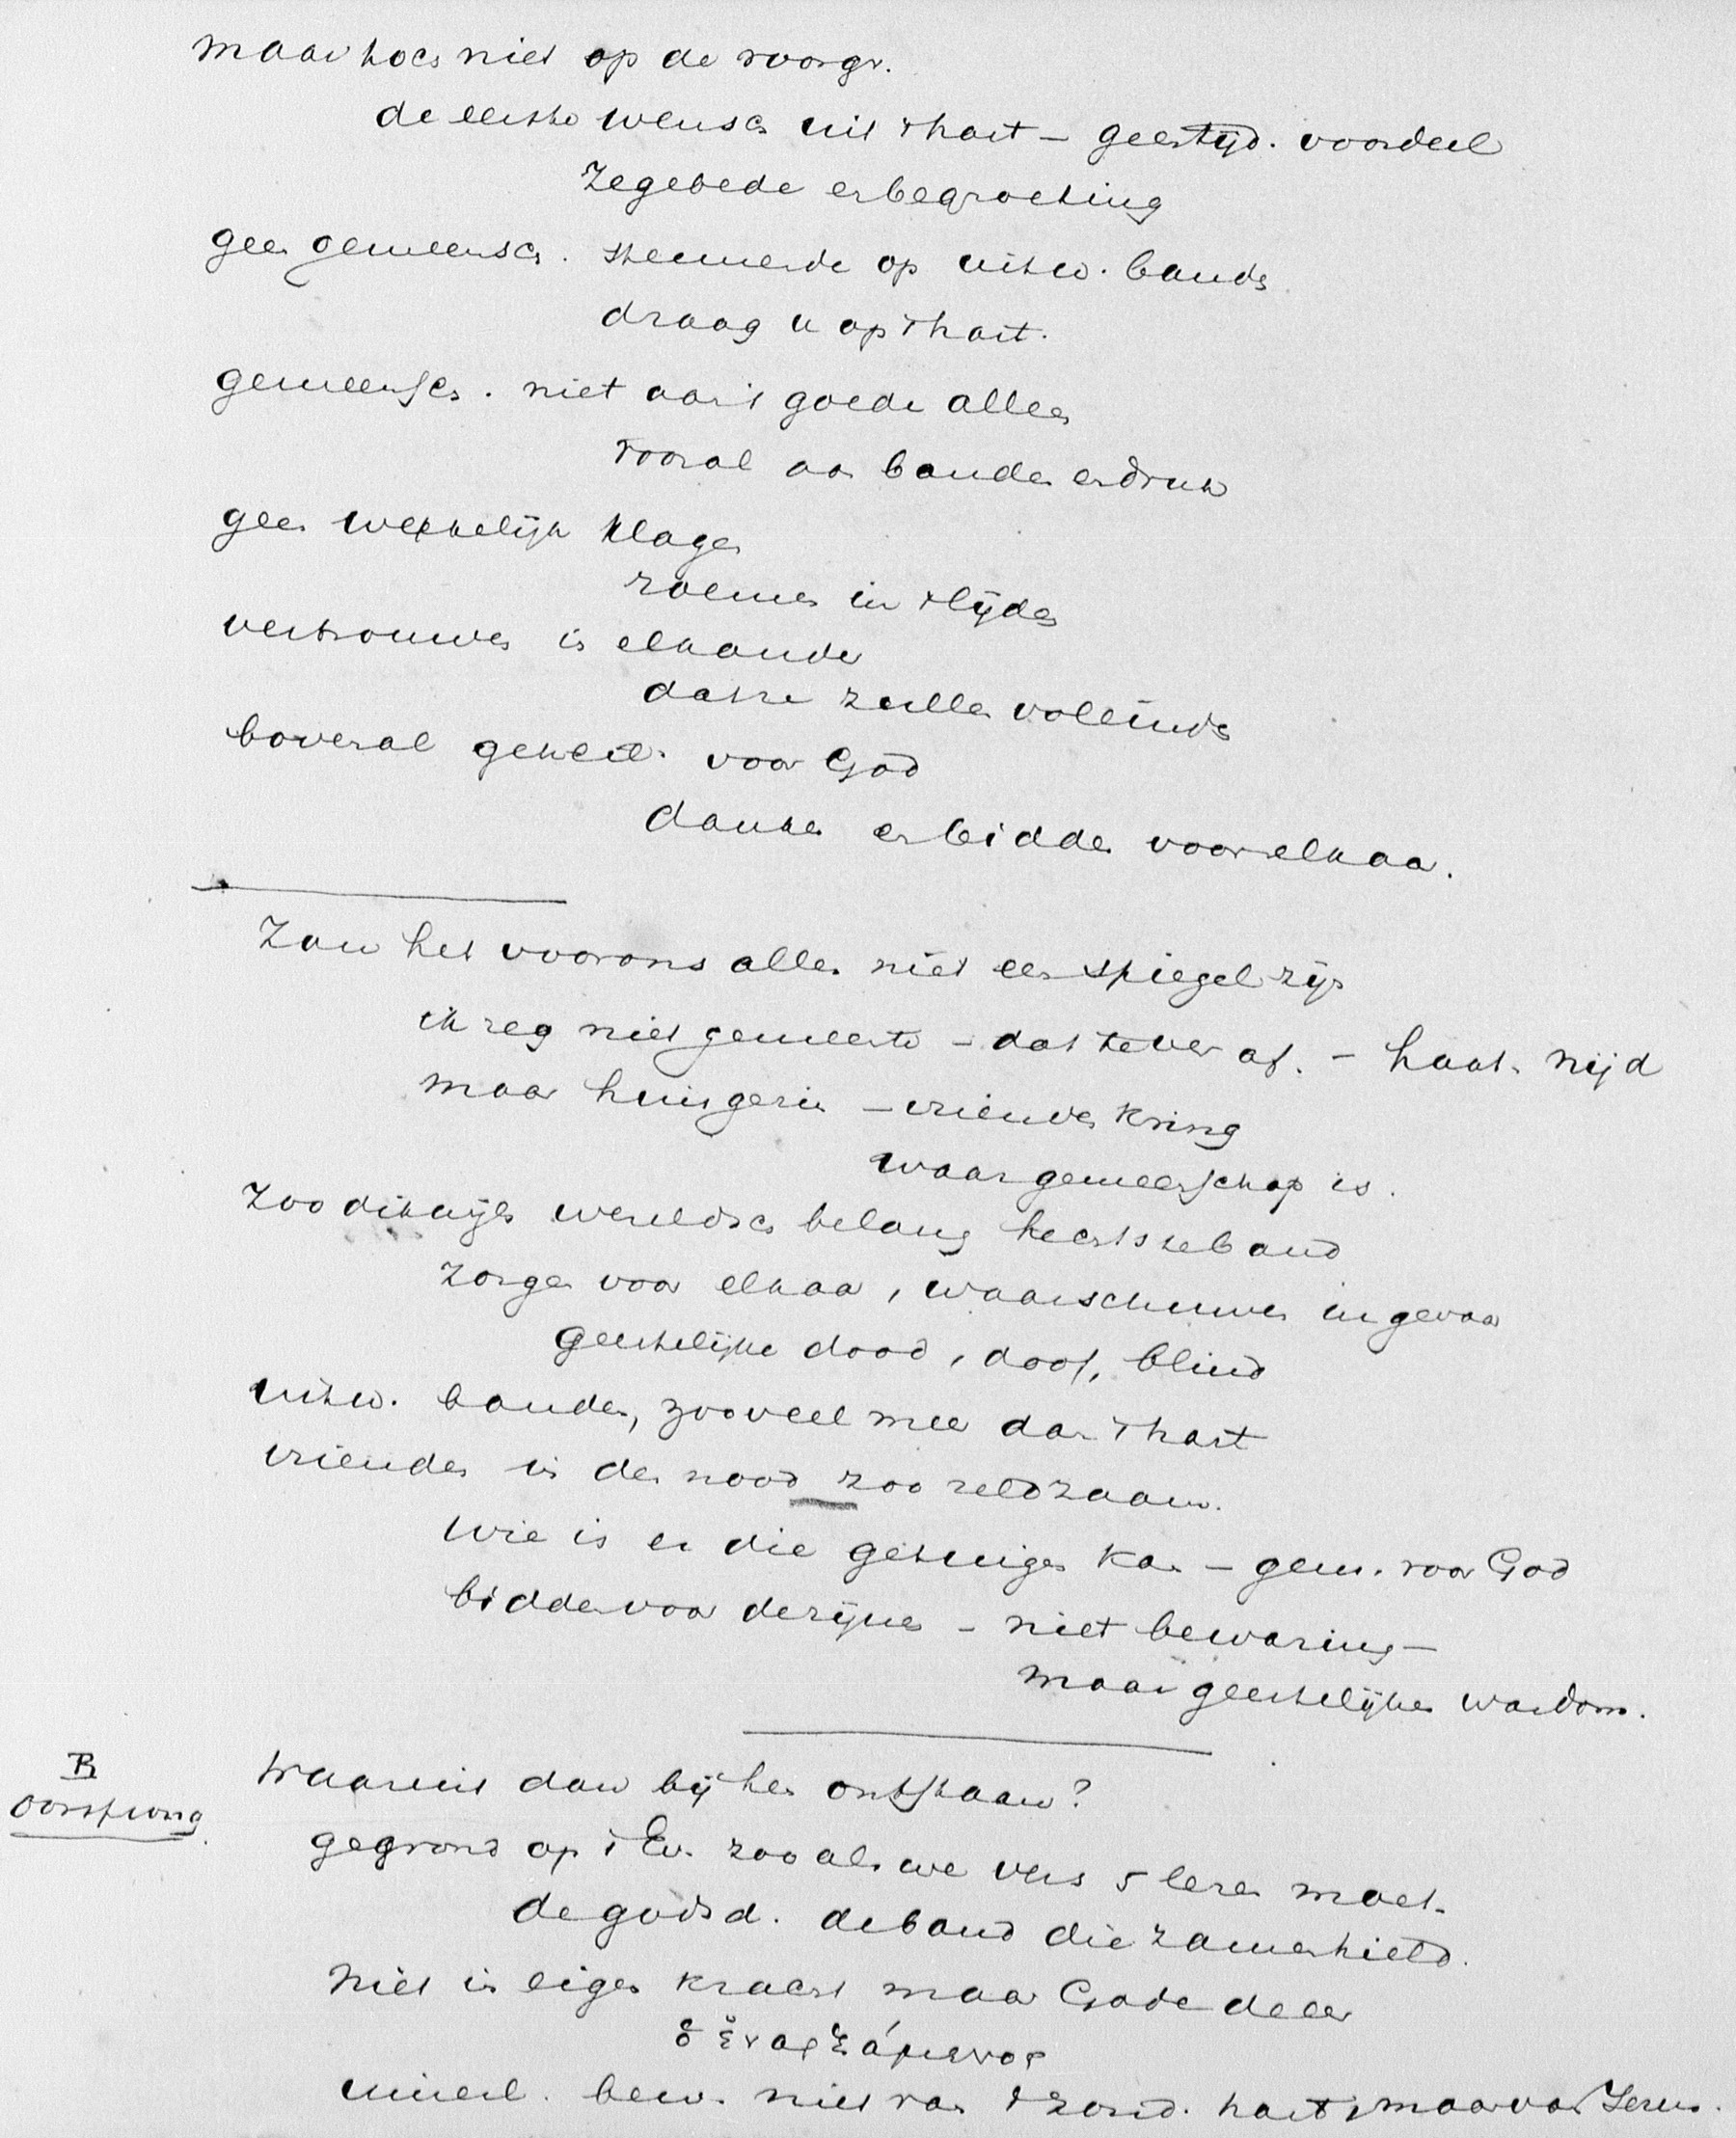 maar toch niet op de voorgr.
de eerste wensch uit 't hart – geest tijd. voordeel
Zegebede en begroeting
geen gemeensch. steunende op uitw. banden
draag u op 't hart.
gemeensch. niet aan 't goede alleen
vooral aan banden en druk
geen wekelijk klagen
roemen in 't lijden
vertrouwen in elkander
dat ze zullen volleinden
bovenal gemeensch. voor God
danken en bidden voor elkaar.
Zou het voor ons allen niet een spiegel zijn
ik zeg niet gemeente – dat te ver af. – haat. nijd
maar huisgezin – vrienden kring
waar gemeenschap is.
Zoo dikwijls wereldsch belang hechtste band
zorgen voor elkaar, waarschuwen in gevaar
geestelijke dood, doof, blind
uitw. banden, zooveel meer dan 't hart
vrienden in den nood zoo zeldzaam.
Wie is er die getuigen kan – gem. voor God
bidden voor de zijnen – niet bewaring –
maar geestelijken wasdom.
B
Oorsprong.
Waaruit dan bij hen ontstaan?
gegrond op 't Ev. zooals we vers 5 lezen moet.
de godsd. de band die zamenhield.
Niet in eigen kracht maar Gode deel
ὁ ἐναρξάμενος
uitved. bew. niet van 't zond. hart, maar van Jezus.